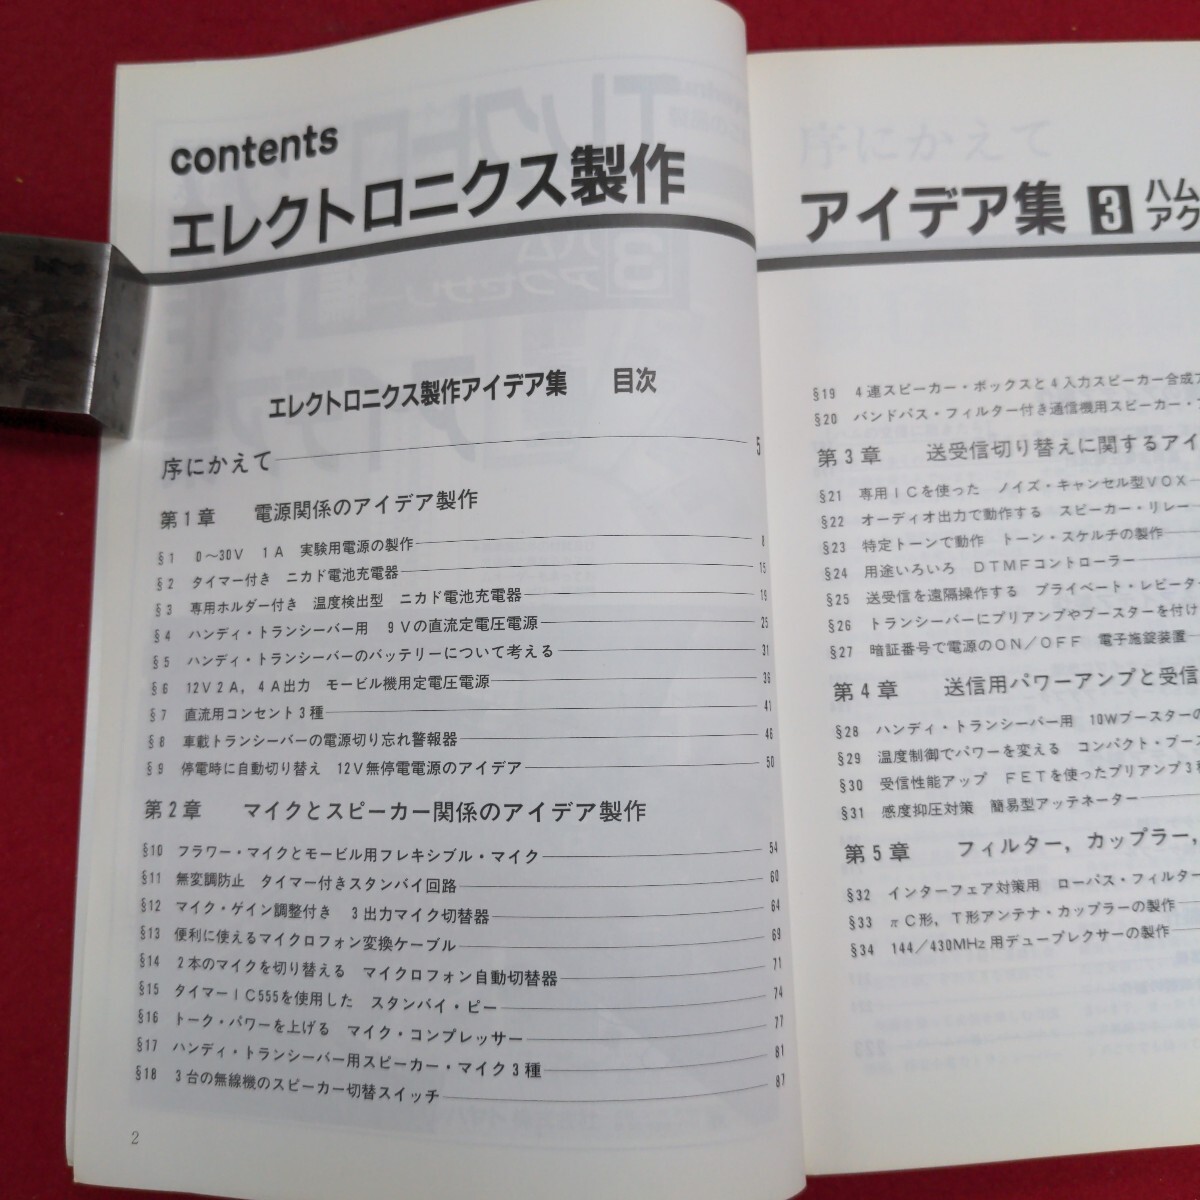 contents
エレクトロニクス製作
エレクトロニクス製作アイデア集 目次
序にかえて 5
第1章 電源関係のアイデア製作
§1 0～30V 1A 実験用電源の製作 8
§2 タイマー付き ニカド電池充電器 15
§3 専用ホルダー付き 温度検出型 ニカド電池充電器 19
§4 ハンディ・トランシーバー用 9Vの直流定電圧電源 25
§5 ハンディ・トランシーバーのバッテリーについて考える 31
§6 12V2A，4A出力 モービル機用定電圧電源 36
§7 直流用コンセント3種 41
§8 車載トランシーバーの電源切り忘れ警報器 46
§9 停電時に自動切り替え 12V無停電電源のアイデア 50
第2章 マイクとスピーカー関係のアイデア製作
§10 フラワー・マイクとモービル用フレキシブル・マイク 54
§11 無変調防止 タイマー付きスタンバイ回路 60
§12 マイク・ゲイン調整付き 3出力マイク切替器 64
§13 便利に使えるマイクロフォン変換ケーブル 69
§14 2本のマイクを切り替える マイクロフォン自動切替器 71
§15 タイマーIC555を使用した スタンバイ・ピー 74
§16 トーク・パワーを上げる マイク・コンプレッサー 77
§17 ハンディ・トランシーバー用スピーカー・マイク3種 81
§18 3台の無線機のスピーカー切替スイッチ 87
2
アイデア集 3 ハム
アク
§19 4連スピーカー・ボックスと4入力スピーカー合成
§20 バンドパス・フィルター付き通信機用スピーカー・
第3章 送受信切り替えに関するアイ
§21 専用ICを使った ノイズ・キャンセル型VOX
§22 オーディオ出力で動作する スピーカー・リレー
§23 特定トーンで動作 トーン・スケルチの製作
§24 用途いろいろ DTMFコントローラー
§25 送受信を遠隔操作する プライベート・レピータ
§26 トランシーバーにプリアンプやブースターを付け
§27 暗証番号で電源のON／OFF 電子施錠装置
第4章 送信用パワーアンプと受信
§28 ハンディ・トランシーバー用 10Wブースターの
§29 温度制御でパワーを変える コンパクト・ブース
§30 受信性能アップ FETを使ったプリアンプ3種
§31 感度抑圧対策 簡易型アッテネーター
第5章 フィルター，カップラー，
§32 インターフェア対策用 ローパス・フィルター
§33 πC形，T形アンテナ・カップラーの製作
§34 144／430MHz用デュープレクサーの製作